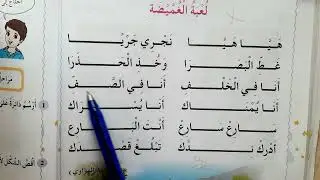 لُعْبَةُ الْغُمَيْضَة
هَيَّا هَيَّا نَجْرِي جَرْيًا
غَطِّ الْبَصَرَا وَخُذِ الْحَذَرَا
أَنَا فِي الْخَلْفِ أَنَا فِي الصَّفِّ
أَنَا يُمْنَاكَ أَنَا يُسْرَاكَ
سَارِعْ سَارِعْ أَنْتَ الْبَارِعْ
أَدْرِكْ نِدَّكْ تَبْلُغْ قَصْدَكْ
الهزاوي